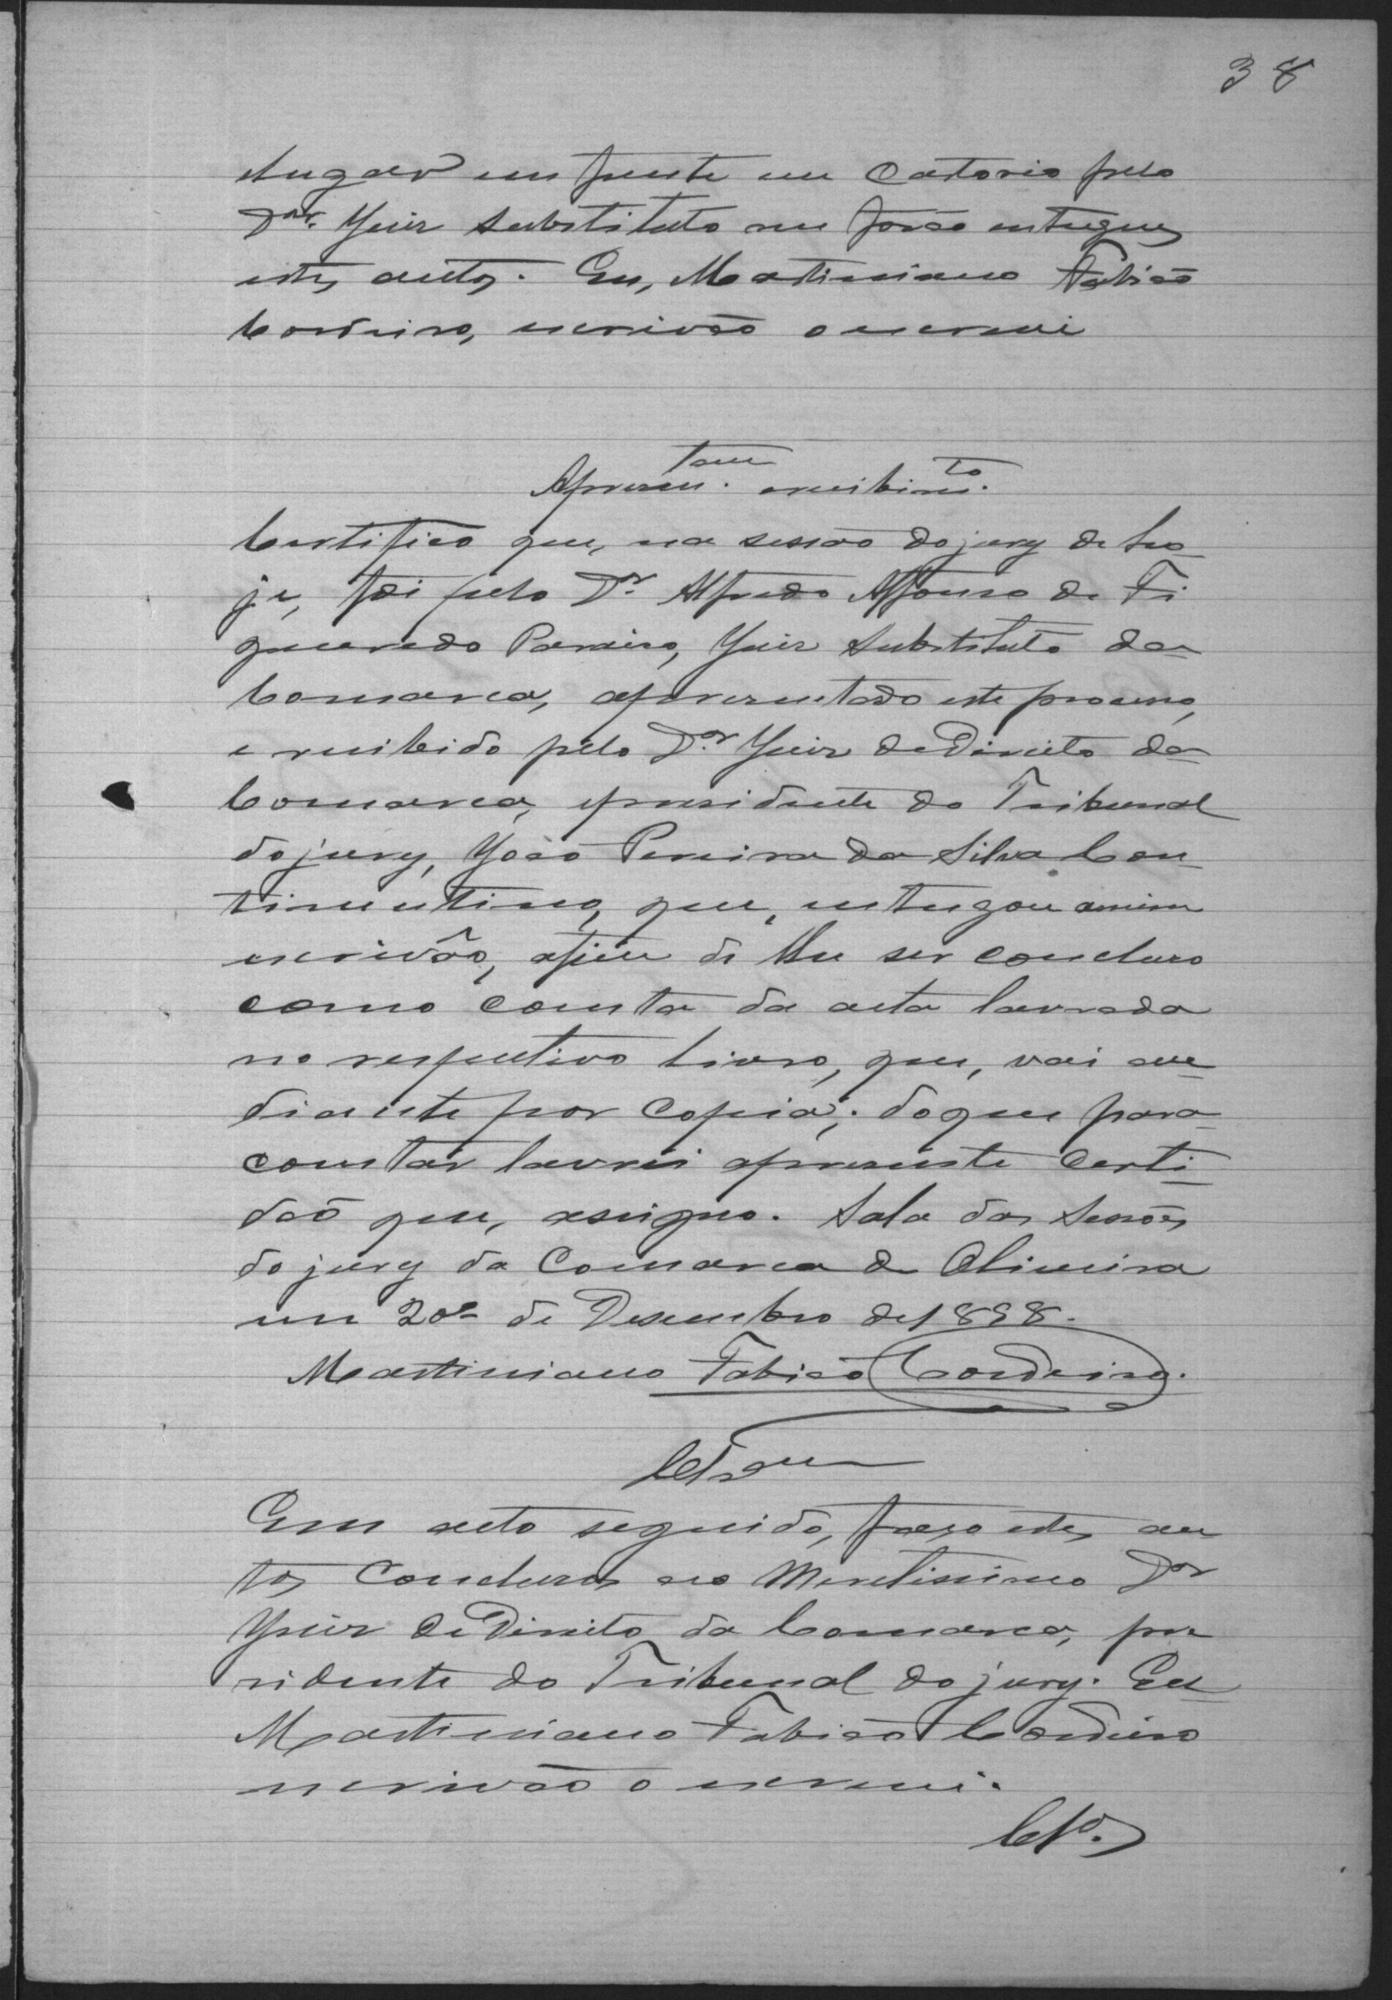 38
lugar em frente um Cartorio pelo
Dor. Juiz Substituto me forão entregues
estes autos. Eu, Martiniano Fabião
Cordeiro, escrivão o escrevi
Apresen.tam e recibim.to
Certifico que, na sessão do jury de ho
je, foi pelo Dr. Alfredo Affonso de Fi
gueredo Paraiso, Juiz Substituto da
Comarca, apresentado este processo,
e recibido pelo Dor. Juiz de Direito da
Comarca, e presidente do Tribunal
do jury, João Pereira da Silva Con
tinentino, que, entregou a mim
escrivão, afim de lhe ser concluso
como consta da acta lavrada
no respectivo livro, que, vai a
diante por copia; do que para
constar lavrei a presente Certi
dão que, assigno. Sala das Sessões
do jury da Comarca de Oliveira
em 20 de Desembro de 1898.
Martiniano Fabião Cordeiro.
Clsam
Em acto seguido, faço estes au
tos Conclusos ao Meretissimo Dor
Juiz de Direito da Comarca, pre
sidente do Tribunal do jury. Eu
Martiniano Fabião Cordeiro
escrivão o escrevi.
Clso.